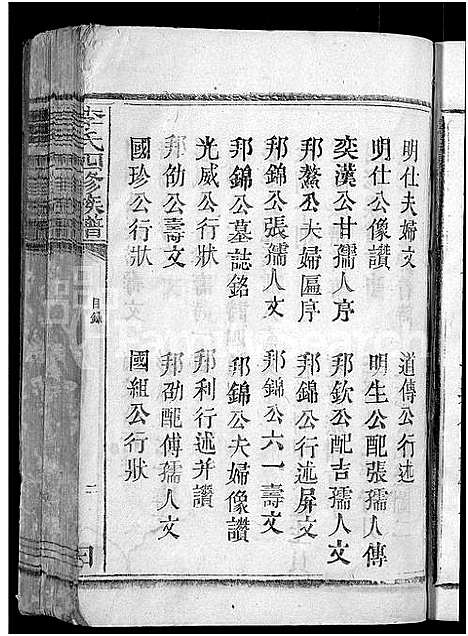 明仕夫婦文
道傳公行述
明仕公像讚
明生公配張孺人傳
奕漢公甘孺人序
邦欽公配吉孺人文
邦鰲公夫婦匾序
邦錦公行述屏文
邦錦公張孺人文
邦錦公六一壽文
邦錦公墓誌銘
邦錦公夫婦像讚
光威公行狀
邦利行述并讚
邦劭公壽文
邦劭配傅孺人文
國珍公行狀
國組公行狀
李氏四修族譜
目錄
二